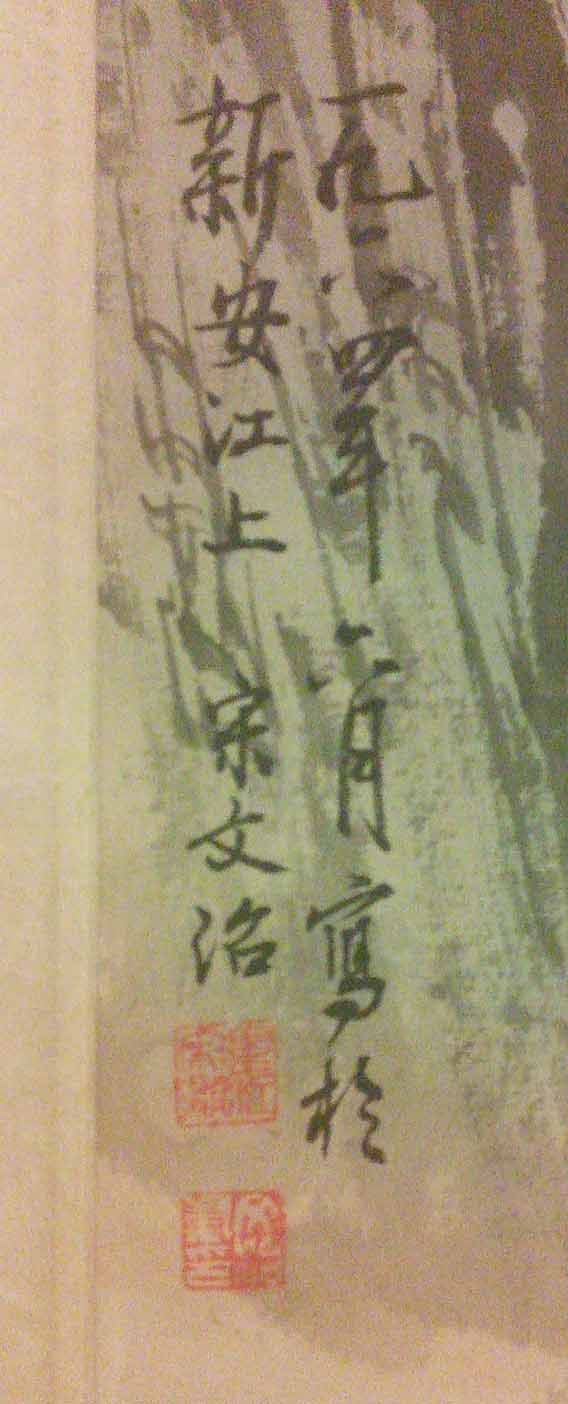 一九六四年六月寫於
新安江上 宋文治